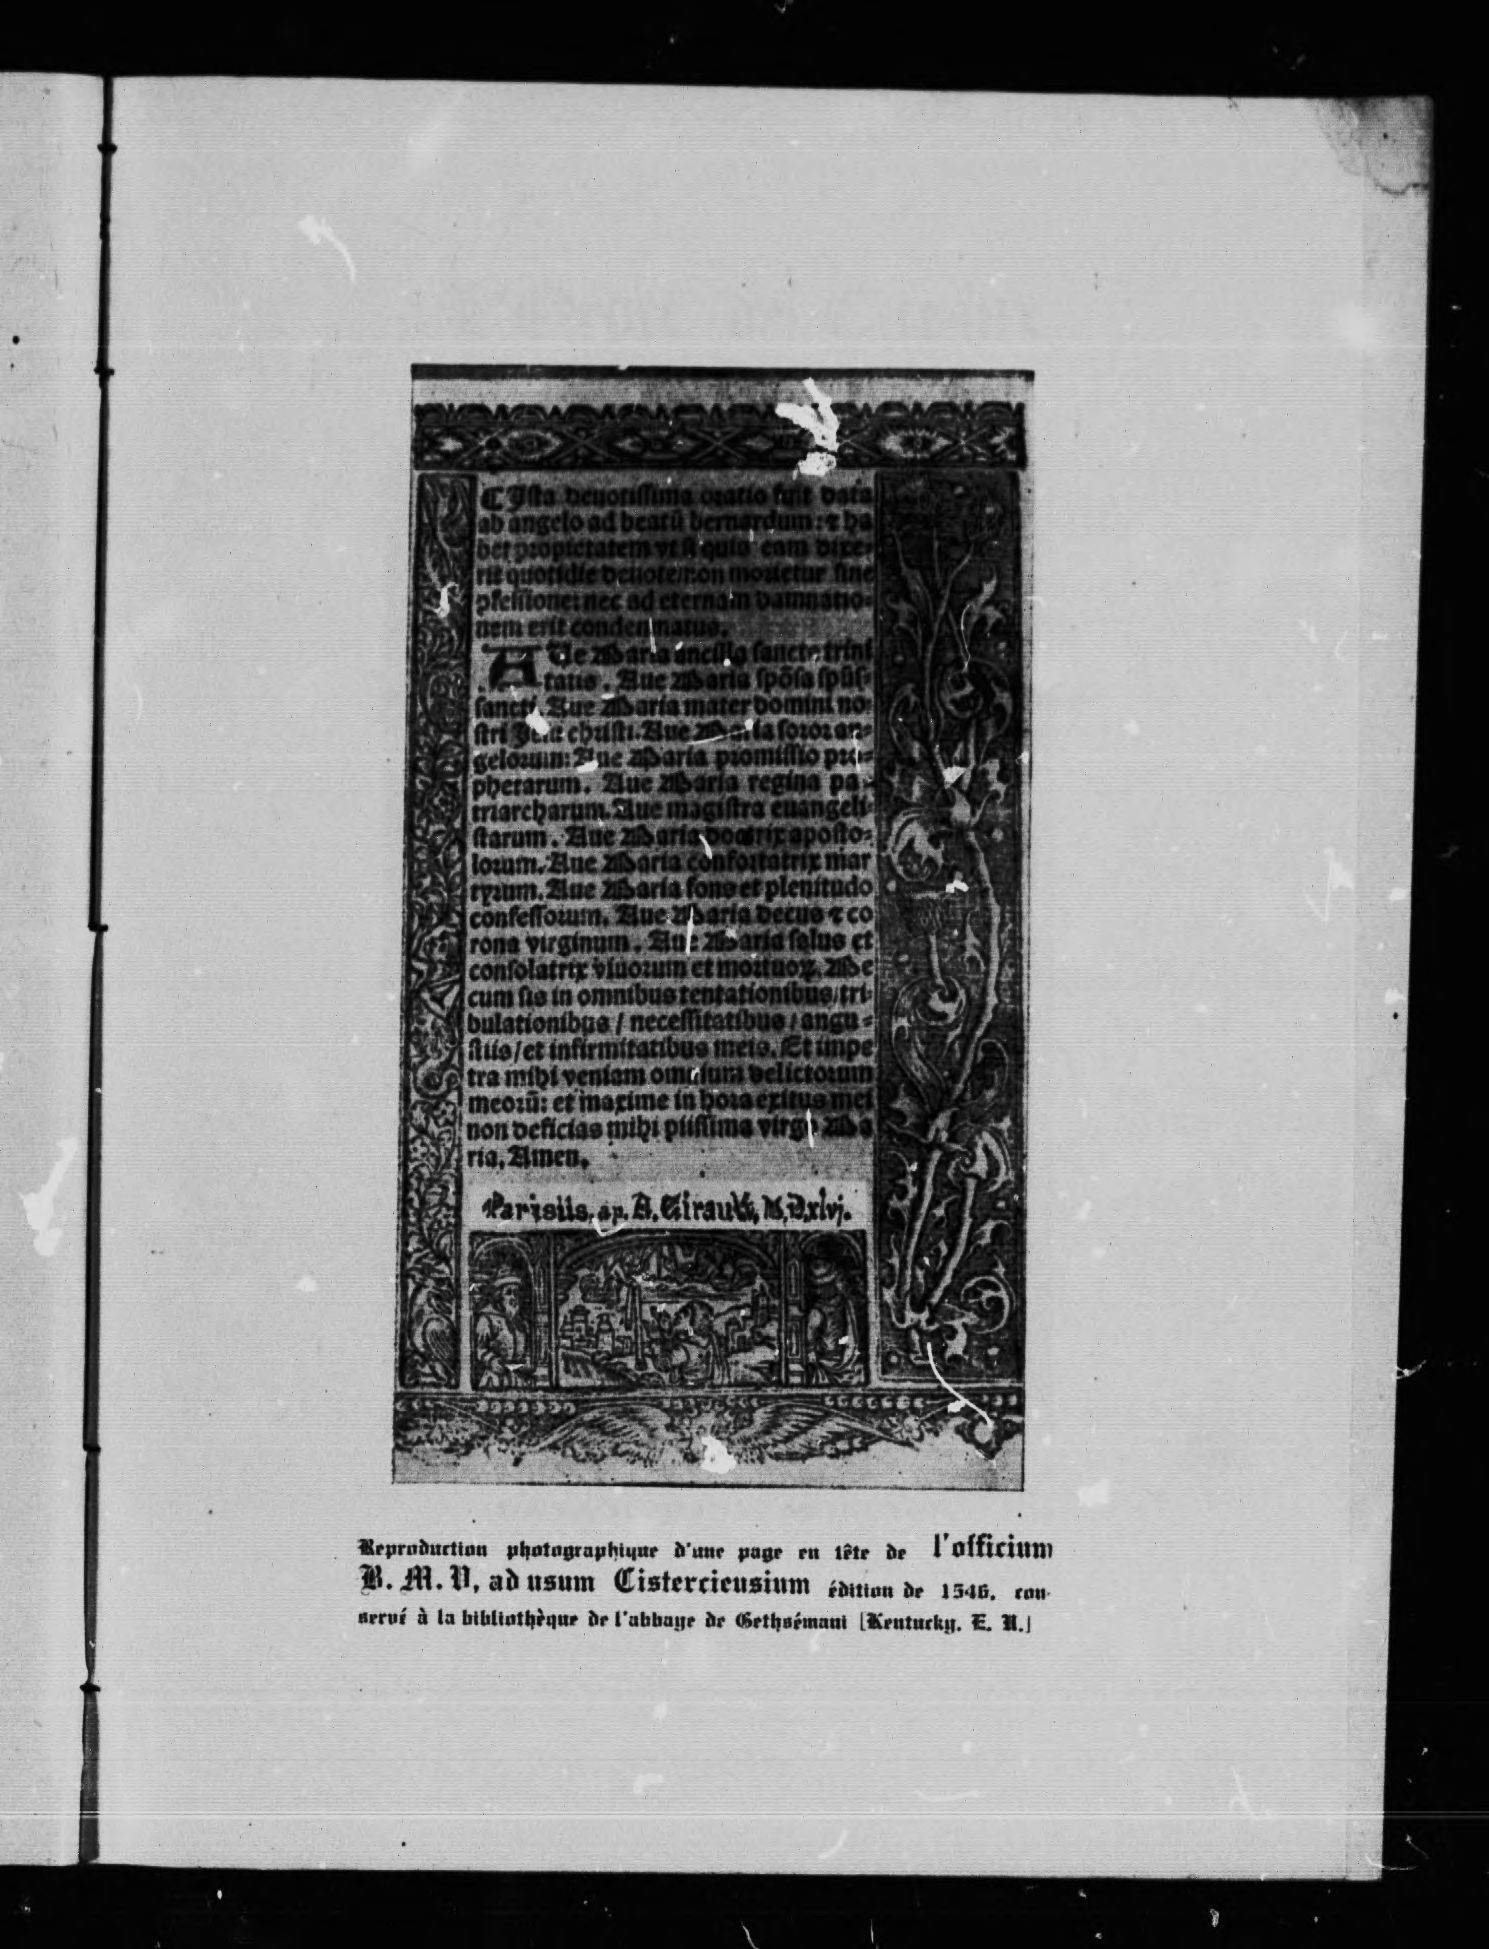 ¶ Ista deuotissima oratio fuit data
ab angelo ad beatū bernardum: ⁊ ha
bet proprietatem vt si quis eam dixe-
rit quotidie deuote/non morietur sine
ꝯfessione: nec ad eternam damnatio-
nem erit condemnatus.
AUe Maria ancilla sancte trini
tatis. Aue Maria spōsa spūs-
sancti. Aue Maria mater domini no-
stri Jesu christi. Aue Maria soror an-
gelorum: Aue Maria promissio pro-
phetarum. Aue Maria regina pa-
triarcharum. Aue magistra euangeli-
starum. Aue Maria doctrix aposto-
lorum. Aue Maria confortatrix mar
tyrum. Aue Maria fons et plenitudo
confessorum. Aue Maria decus ⁊ co
rona virginum. Aue Maria salus et
consolatrix viuorum et mortuoꝝ. Me
cum sis in omnibus tentationibus/tri-
bulationibus / necessitatibus / angu-
stiis/et infirmitatibus meis. Et impe
tra mihi veniam omnium delictorum
meorū: et maxime in hora exitus mei
non deficias mihi piissima virgo Ma
ria, Amen.
Parisiis, ap. A. Girault, M.D.xlvj.
Reproduction photographique d'une page en tête de l'officium
B. M. V, ad usum Cisterciensium édition de 1546, con-
servé à la bibliothèque de l'abbaye de Gethsémani [Kentucky. E. U.]